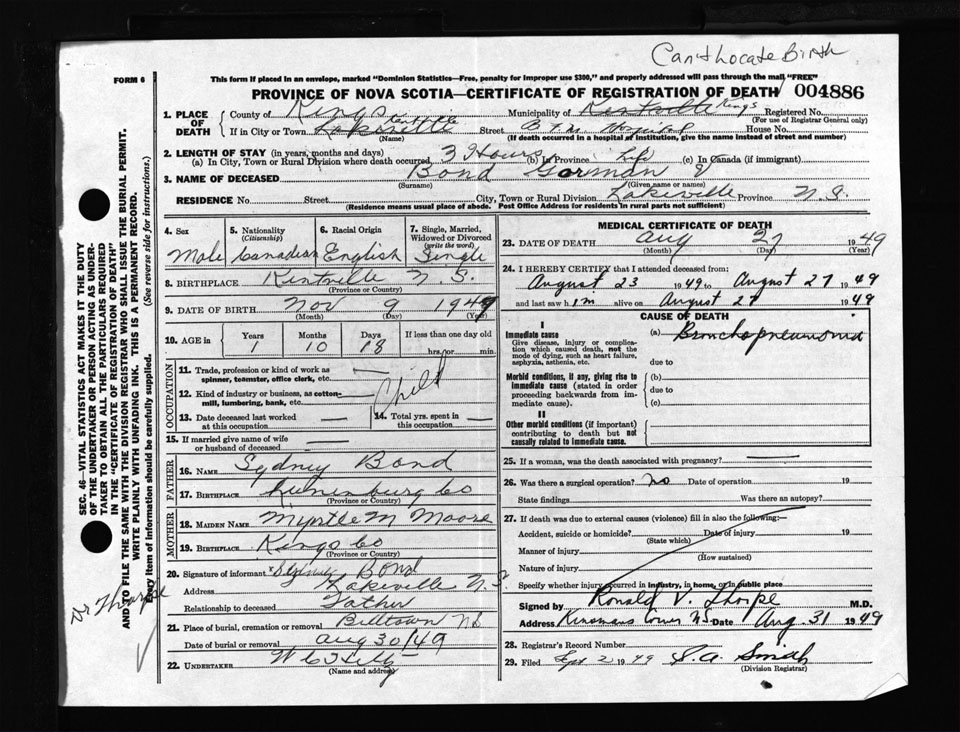 Can't Locate Birth
FORM 6
This form if placed in an envelope, marked "Dominion Statistics—Free, penalty for improper use $300," and properly addressed will pass through the mail "FREE"
PROVINCE OF NOVA SCOTIA—CERTIFICATE OF REGISTRATION OF DEATH 004886
1. PLACE OF DEATH
County of Kings Municipality of Kentville Kings Registered No.
(For use of Registrar General only)
If in City or Town Kentville Lakeville Street Hospital House No.
(Name) (If death occurred in hospital of institution, give the name instead of street and number)
2. LENGTH OF STAY (in years, months and days)
(a) In City, Town or Rural Division where death occurred, 3 Hours (b) In Province Life (c) In Canada (if immigrant)
3. NAME OF DECEASED Bond Gorman
(Surname) (Given name or names)
RESIDENCE No. Street City, Town or Rural Division Lakeville Province N.S.
(Residence means usual place of abode. Post Office Address for residents in rural parts not sufficient)
4. Sex Male
5. Nationality (Citizenship) Canadian
6. Racial Origin English
7. Single, Married, Widowed or Divorced (write the word) Single
8. BIRTHPLACE Kentville N.S.
(Province or Country)
9. DATE OF BIRTH Nov 9 194
(Month) (Day) (Year)
10. AGE in Years 1 Months 10 Days 18 If less than one day old hrs. or min.
OCCUPATION
11. Trade, profession or kind of work as spinner, teamster, office clerk, etc. —
12. Kind of industry or business, as cotton-mill, lumbering, bank, etc. —
Child
13. Date deceased last worked at this occupation
14. Total yrs. spent in this occupation
15. If married give name of wife or husband of deceased
FATHER
16. NAME Sydney Bond
17. BIRTHPLACE Lunenburg Co
(Province or Country)
MOTHER
18. MAIDEN NAME Myrtle M Moore
19. BIRTHPLACE Kings Co
(Province or Country)
20. Signature of informant x Sydney Bond
Address Lakeville N.S.
Relationship to deceased Father
21. Place of burial, cremation or removal Billtown NS
Date of burial or removal Aug 30/49
22. UNDERTAKER
(Name and address)
MEDICAL CERTIFICATE OF DEATH
23. DATE OF DEATH Aug 27 1949
(Month) (Day) (Year)
24. I HEREBY CERTIFY that I attended deceased from:
August 23 1949 to August 27 1949
and last saw him alive on August 27 1949
CAUSE OF DEATH
I
Immediate cause (a) Bronchopneumonia
Give disease, injury or complication which caused death, not the mode of dying, such as heart failure, asphyxia, asthenia, etc.
due to
Morbid conditions, if any, giving rise to immediate cause (stated in order proceeding backwards from immediate cause).
(b)
due to
(c)
II
Other morbid conditions (if important) contributing to death but not causally related to immediate cause.
25. If a woman, was the death associated with pregnancy? —
26. Was there a surgical operation? No Date of operation 19
State findings Was there an autopsy?
27. If death was due to external causes (violence) fill in also the following:—
Accident, suicide or homicide? Date of injury 19
(State which)
Manner of injury
(How sustained)
Nature of injury
Specify whether injury occurred in industry, in home, or in public place
Signed by Ronald V. Thorpe M.D.
Address Kinsmans Corner N.S. Date Aug. 31 1949
28. Registrar's Record Number
29. Filed Sept 2 1949 S. A. Smith
(Division Registrar)
SEC. 46—VITAL STATISTICS ACT MAKES IT THE DUTY
OF THE UNDERTAKER OR PERSON ACTING AS UNDER-
TAKER TO OBTAIN ALL THE PARTICULARS REQUIRED
IN THE "CERTIFICATE OF REGISTRATION OF DEATH"
AND TO FILE THE SAME WITH THE DIVISION REGISTRAR WHO SHALL ISSUE THE BURIAL PERMIT.
WRITE PLAINLY WITH UNFADING INK. THIS IS A PERMANENT RECORD.
Every item of information should be carefully supplied. (See reverse side for instructions.)
Dr Thorpe